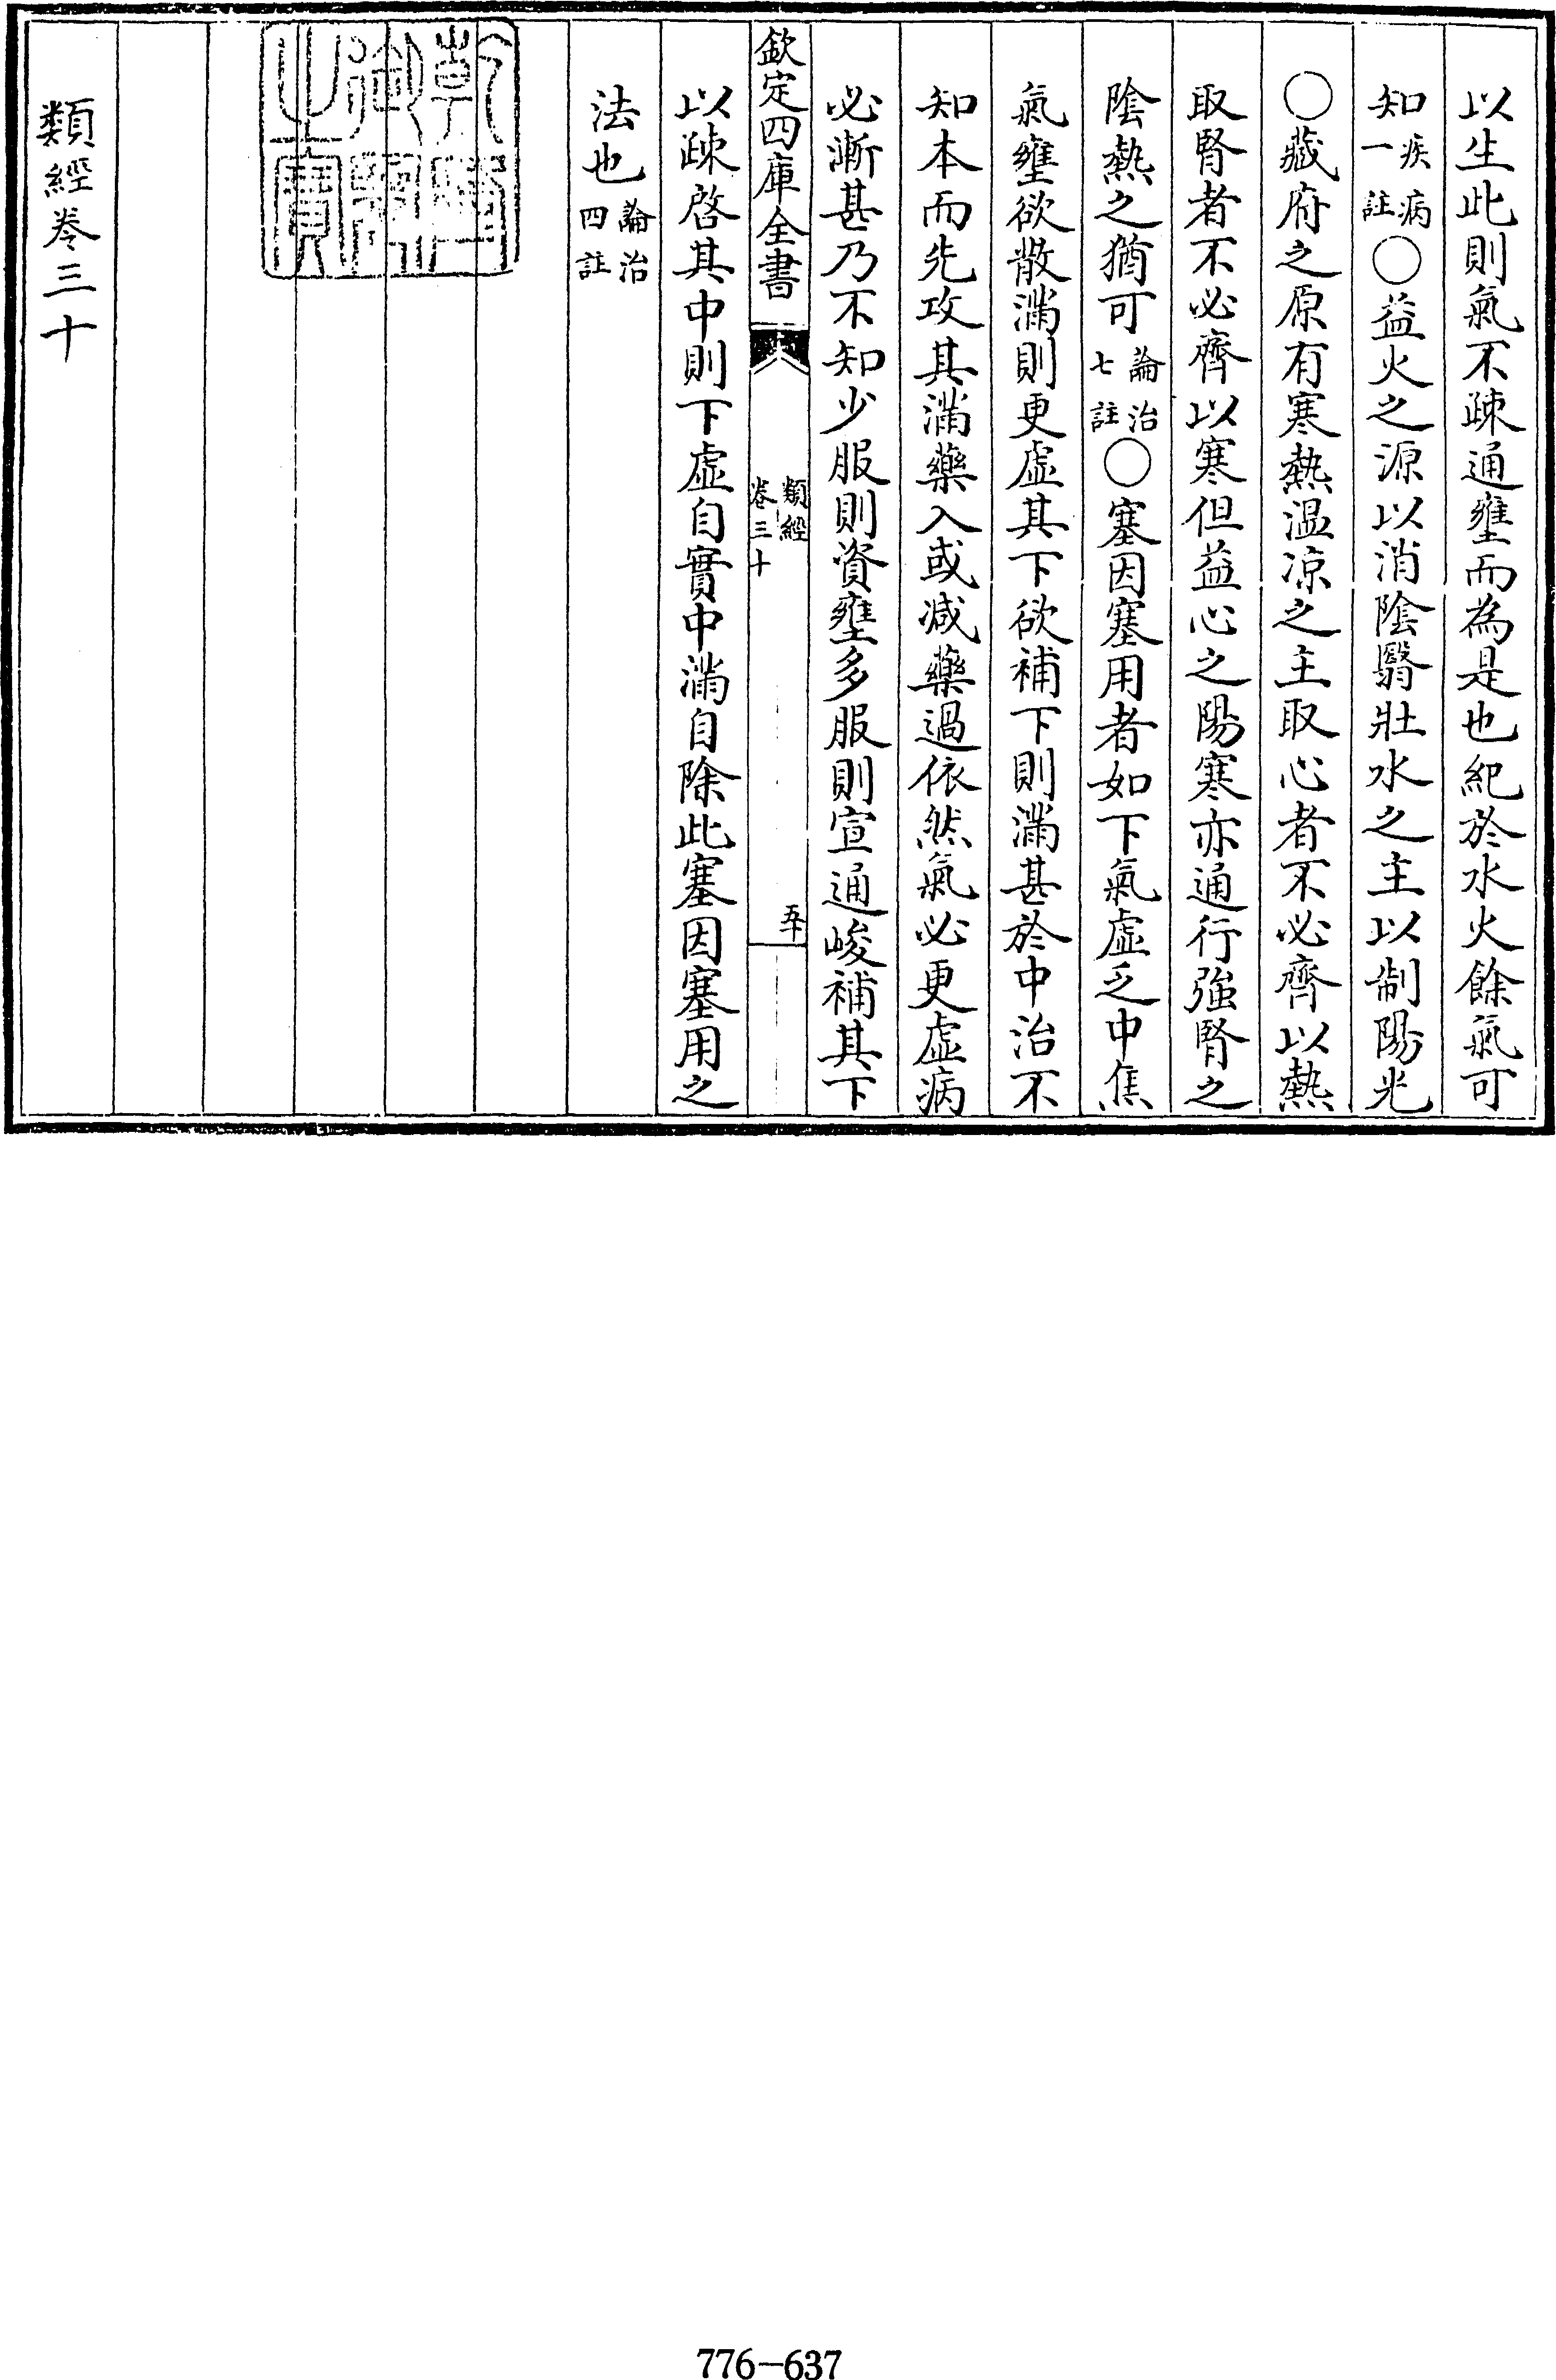 以生此則氣不疎通壅而為是也紀於水火餘氣可
知疾病一註〇益火之源以消陰翳壯水之主以制陽光
〇藏府之原有寒熱溫凉之主取心者不必齊以熱
取腎者不必齊以寒但益心之陽寒亦通行強腎之
陰熱之猶可論治七註〇塞因塞用者如下氣虛乏中焦
氣壅欲散滿則更虛其下欲補下則滿甚於中治不
知本而先攻其滿藥入或减藥過依然氣必更虛病
必漸甚乃不知少服則資壅多服則宣通峻補其下
欽定四庫全書
類經
卷三十
五十
以疎啓其中則下虛自實中滿自除此塞因塞用之
法也論治四註
乾隆御覽之寶
類經卷三十
776-637